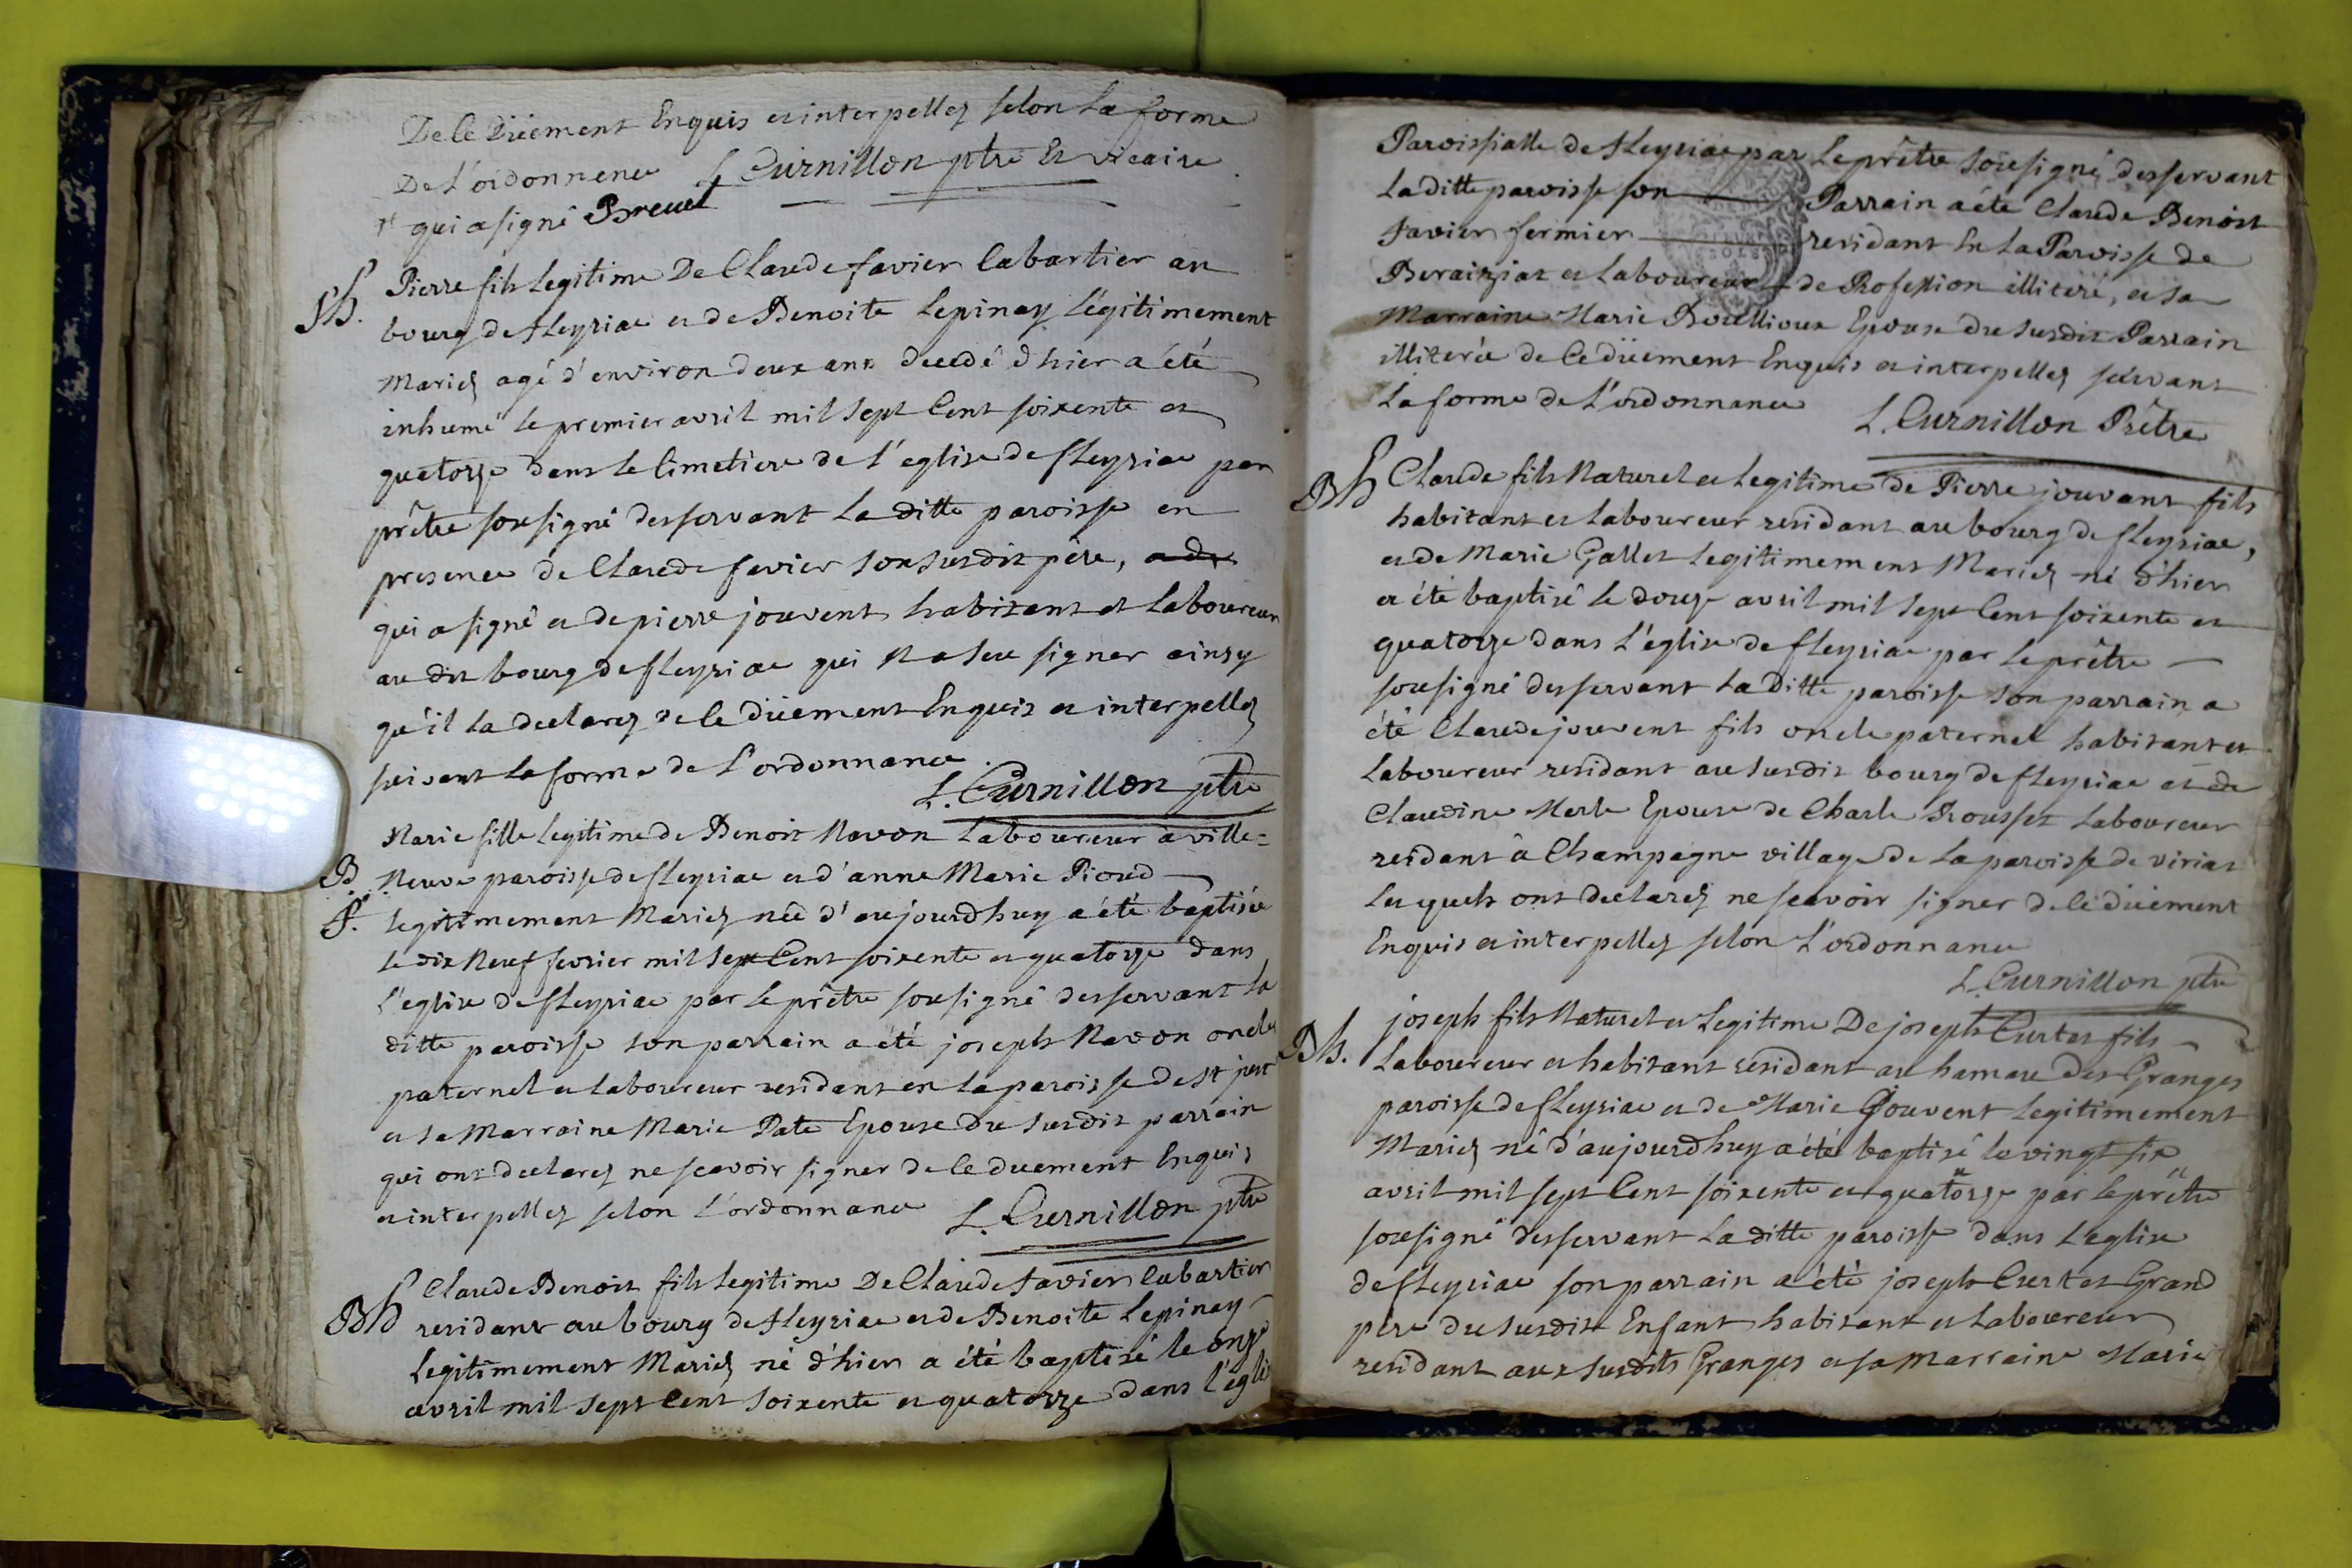 De le düement Enquis et interpellez selon la forme
De l'ordonnence L Curnillon ptre Et vicaire
qui a signé Breuet
Sh. Pierre fils legitime De Claude favier Cabartier au
bourg de fleyriac et de Benoite Lepinay Légitimement
Mariez agé d'environ deux ans decedé d'hier a été
inhumé le premier avril mil sept Cent soixente et
quatorze dans le Cimetiere de l'eglise de fleyriac par
prêtre sousigné desservant la ditte paroisse en
presence de Claude favier son susdit père, et de
qui a signé et de pierre jouvent habitant et laboureur
au dit bourg de fleyriac qui Na seu signer ainsy
qu'il la declarez de le düement Enquis et interpellez
suivant la forme de l'ordonnance.
L. Curnillon ptre
Marie fille legitime de Benoit Navon laboureur à ville=
B. Neuve paroisse de fleyriac et d'anne Marie Pioud
f. legitimement Mariez née d'aujourdhuy a été baptisée
le dix Neuf fevrier mil sept Cent soixente et quatorze dans
l'eglise de fleyriac par le prêtre sousigné desservant la
ditte paroisse son parrain a été joseph Navon oncle
paternel et laboureur residant en la paroisse de st just
et sa Marraine Marie Pate Epouse du susdit parrain
qui ont declarez ne scavoir signer de le duement Enquis
et interpellez selon l'ordonnance L. Curnillon ptre
Bh Claude Benoit fils legitime De Claude favier Cabartier
residant au bourg de fleyriac et de Benoite Lepinay
Legitimement Mariez né d'hier a été baptisé le onze
avril mil sept Cent soixente et quatorze dans l'églis
Paroissialle de fleyriac par le prêtre sousigné desservant
la ditte paroisse son Parrain a été Claude Benoit
favier fermier residant En la Paroisse de
Beraiziat et laboureur de Profession illiteré, et sa
Marraine Marie Bouillioux Epouse du susdit Parrain
illiterée de le düement Enquis et interpellez suivant
la forme de l'ordonnance
L. Curnillon Prêtre
Bh Claude fils Naturel et legitime de Pierre jouvant fils
habitant et laboureur residant au bourg de fleyriac,
et de Marie Gallet legitimement Mariez né d'hier
a été baptisé le douze avril mil sept Cent soixente et
quatorze dans l'église de fleyriac par le prêtre
sousigné desservant la ditte paroisse son parrain a
été Claude jouvent fils oncle paternel habitant et
laboureur residant au susdit bourg de fleyriac et de
Claudine Merle Epouse de Charle Rousset laboureur
residant à Champagne village de la paroisse de viriat
lesquels ont declarez ne scavoir signer de le düement
Enquis et interpellez selon l'ordonnance
L. Curnillon ptre
joseph fils Naturel et Legitime De joseph Curtet fils
Bh. Laboureur et habitant residant au hameau des Granges
paroisse de fleyriac et de Marie Jouvent legitimement
Mariez né d'aujourdhuy a été baptisé le vingt six
avril mil sept Cent soixente et quatorze par le prêtre
sousigné desservant la ditte paroisse dans l'eglise
de fleyriac son parrain a été joseph Curtet Grand
père du susdit Enfant habitant et laboureur
residant aux susdits Granges et sa Marraine Marie